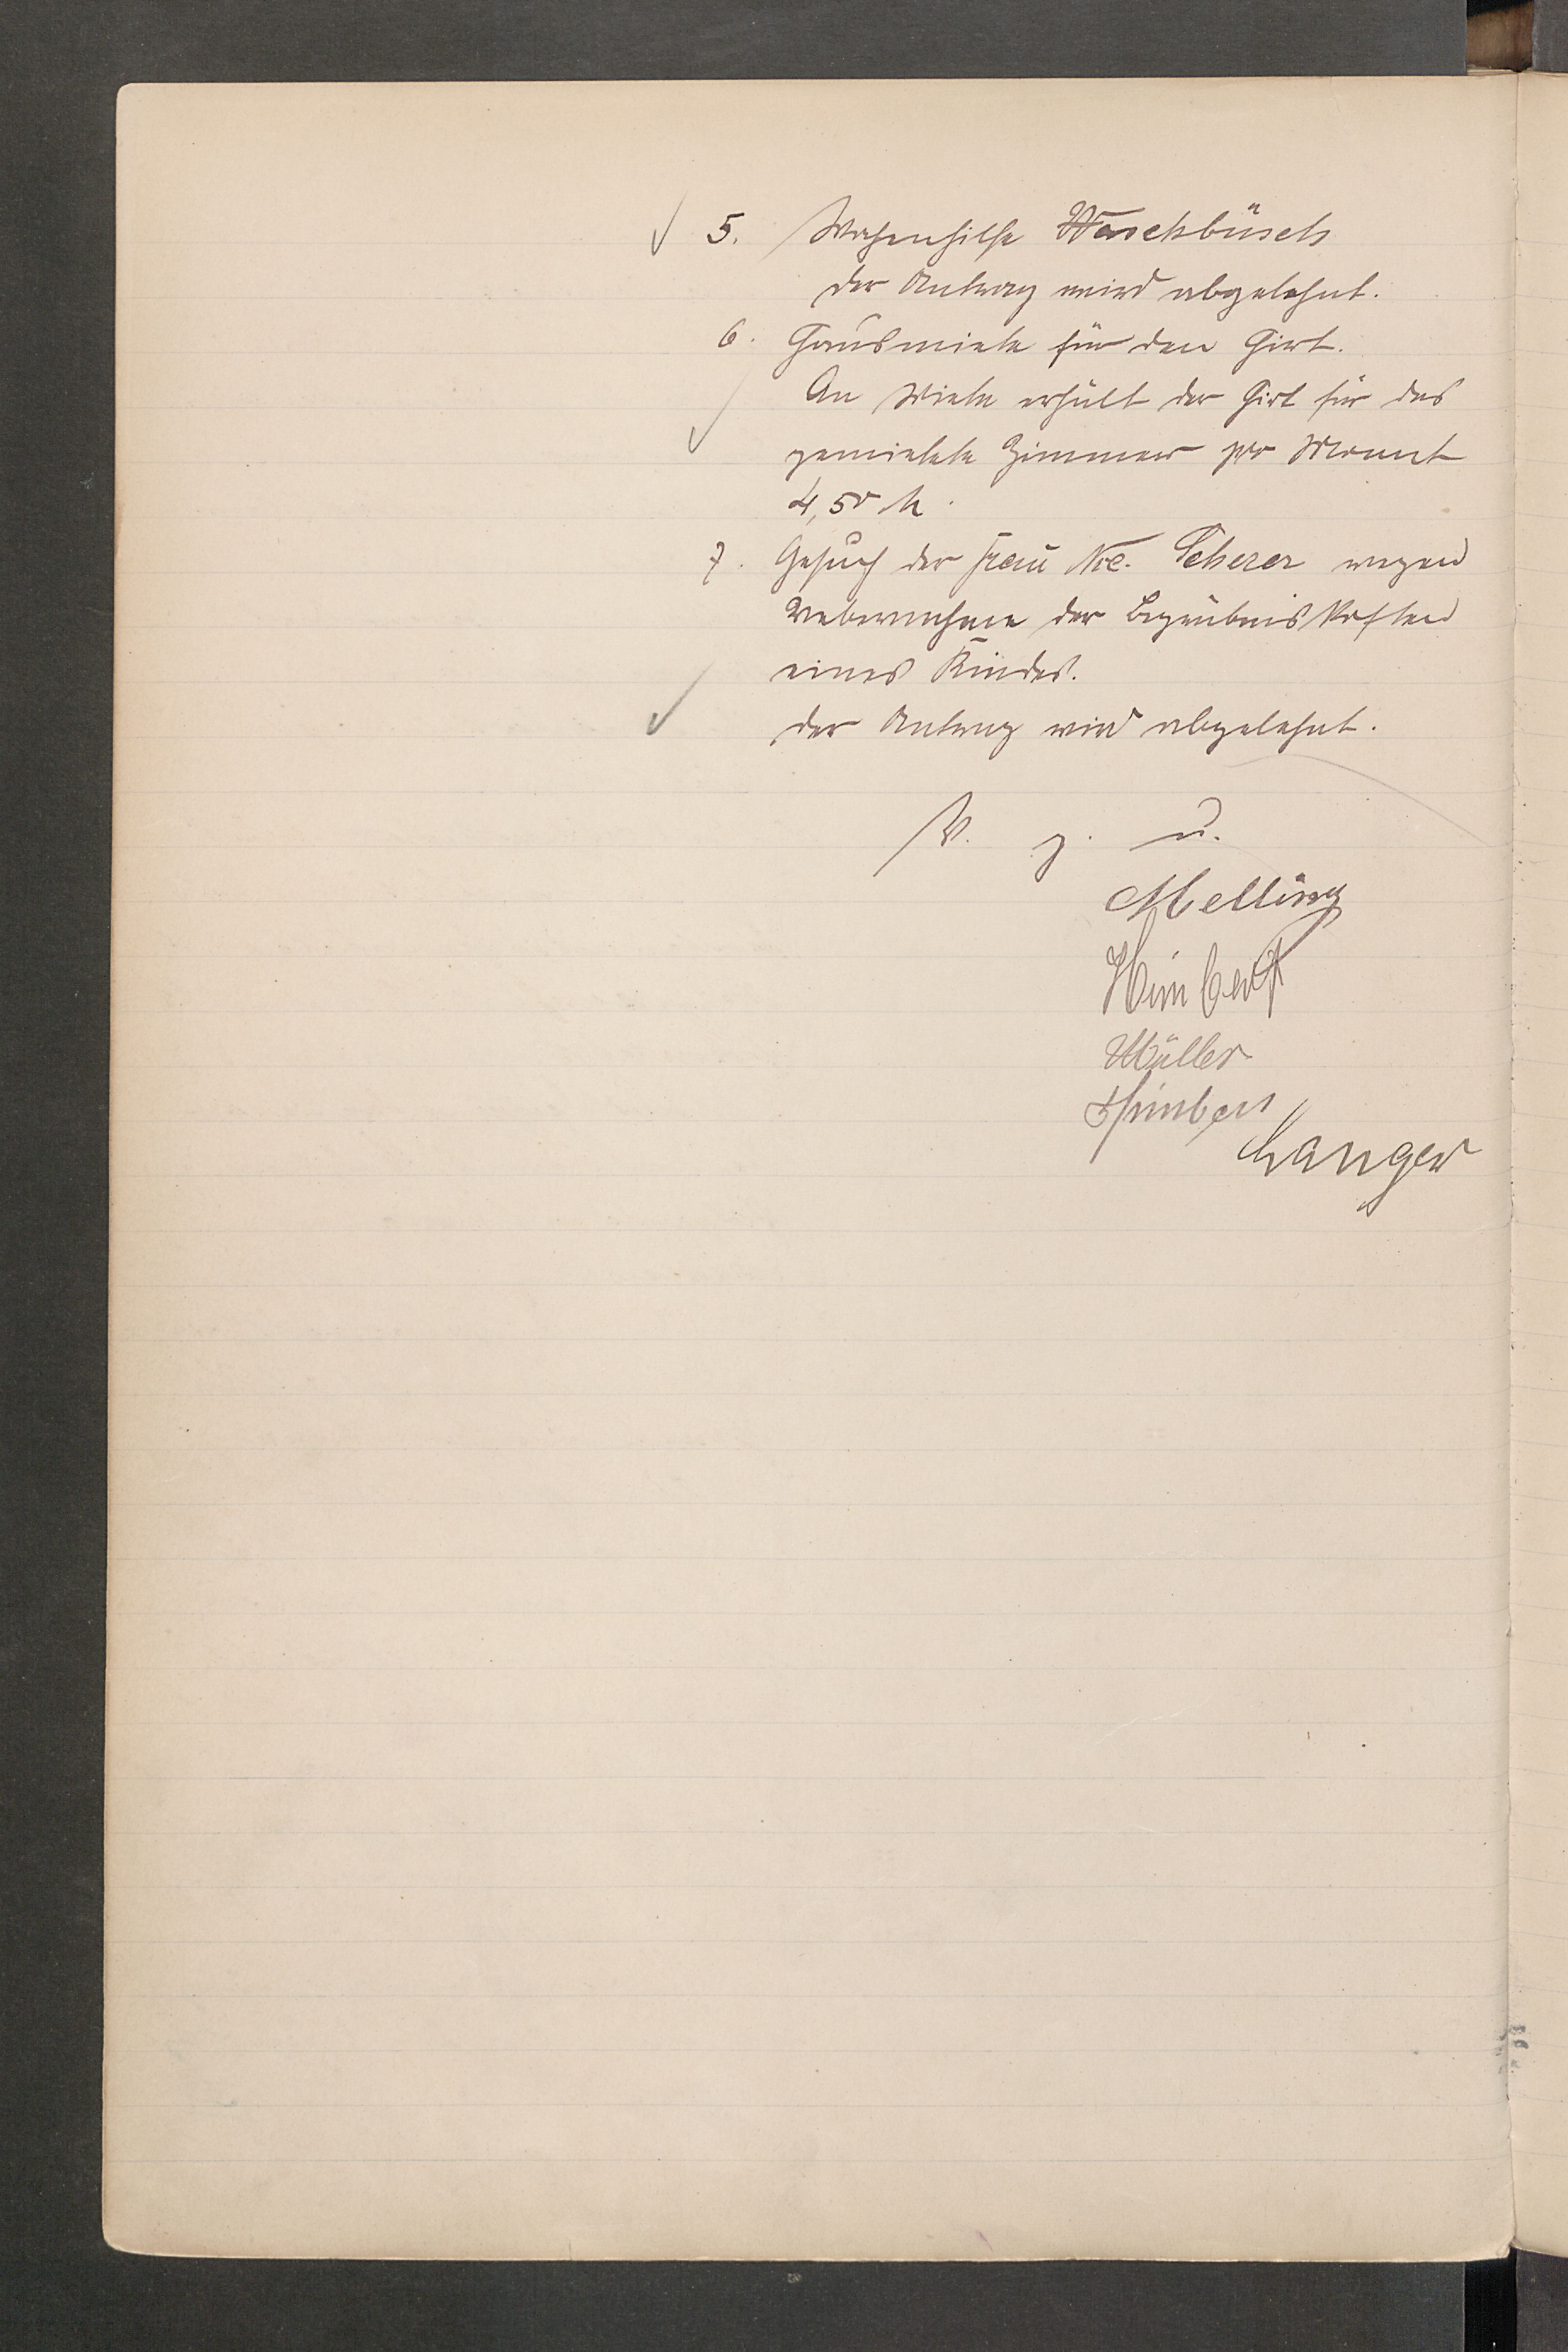 5. Wochenhilfe Waschbüsch
der Antrag wird abgelehnt.
6. Hausmiete für den Hirt.
An Miete erhält der Hirt für das
gemietete Zimmer pro Monat
4,50 M.
7. Gesuch der Frau Nic. Scherer wegen
Uebernahme der Begräbniskosten
eines Kindes.
der Antrag wird abgelehnt.
V. g. u.
Melling
Himbert
Müller
Himbert
Langer